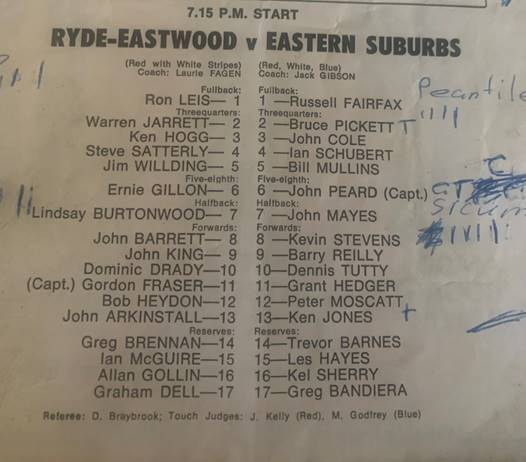 7.15 P.M. START
RYDE-EASTWOOD v EASTERN SUBURBS
(Red with White Stripes) (Red, White, Blue)
Coach: Laurie FAGEN Coach: Jack GIBSON
Fullback: Fullback:
Ron LEIS— 1 1 —Russell FAIRFAX
Threequarters: Threequarters:
Warren JARRETT— 2 2 —Bruce PICKETT T
Ken HOGG— 3 3 —John COLE
Steve SATTERLY— 4 4 —Ian SCHUBERT
Jim WILLDING— 5 5 —Bill MULLINS
Five-eighth: Five-eighth:
Ernie GILLON— 6 6 —John PEARD (Capt.)
Halfback: Halfback:
Lindsay BURTONWOOD— 7 7 —John MAYES
Forwards: Forwards:
John BARRETT— 8 8 —Kevin STEVENS
John KING— 9 9 —Barry REILLY
Dominic DRADY—10 10—Dennis TUTTY
(Capt.) Gordon FRASER—11 11—Grant HEDGER
Bob HEYDON—12 12—Peter MOSCATT
John ARKINSTALL—13 13—Ken JONES
Reserves: Reserves:
Greg BRENNAN—14 14—Trevor BARNES
Ian McGUIRE—15 15—Les HAYES
Allan GOLLIN—16 16—Kel SHERRY
Graham DELL—17 17—Greg BANDIERA
Referee: D. Braybrook; Touch Judges: J. Kelly (Red), M. Godfrey (Blue)